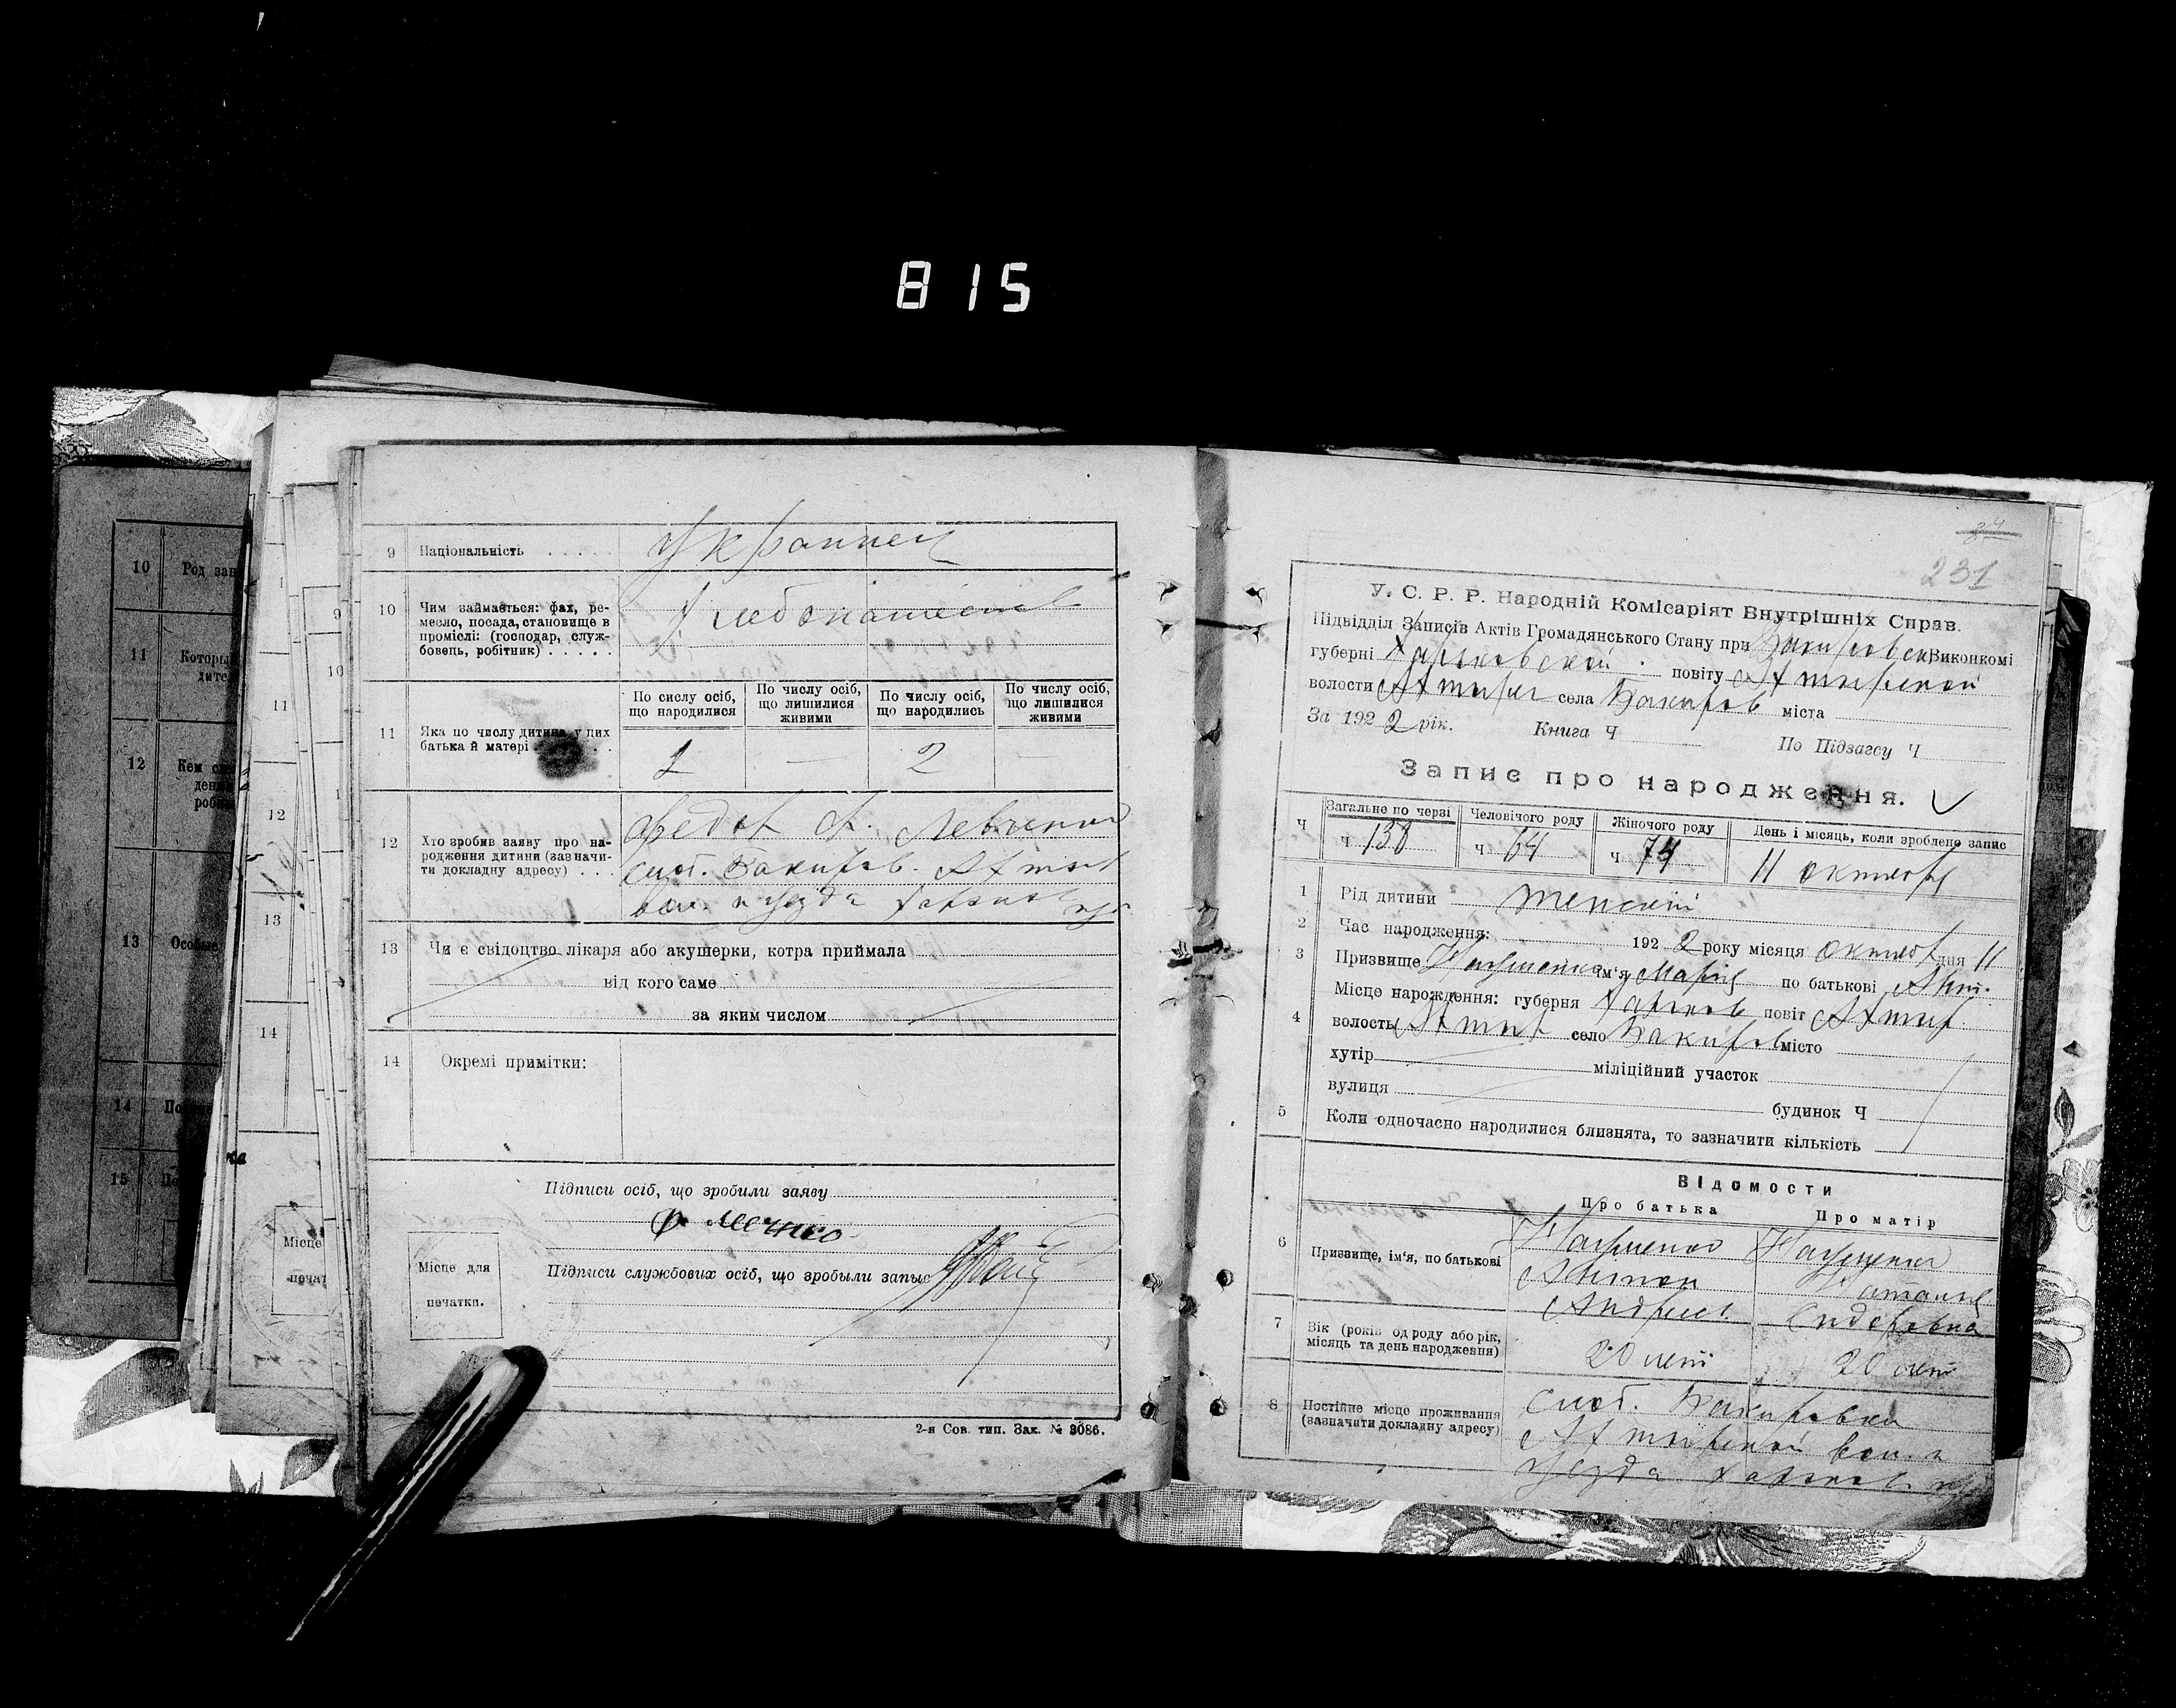 815
10 Род зан
11 Которы
дите
12 Кем с
ден
роб
13 Особые
14 По
15 Пе
9
10
11
12
13
14
Місце
печат
9 Національність . . . . . Украинец
10 Чим займається: фах, ре-
месло, посада, становище в
проміслі: (господар, служ-
бовець, робітник) . . . . .
Хлебопашество
11 Яка по числу дитина у них
батька й матері . . .
По числу осіб, що народилися
По числу осіб, що лишилися живими
По числу осіб, що народились
По числу осіб, що лишилися живими
1 — 2 —
12 Хто зробив заяву про на-
родження дитини (зазначи-
ти докладну адресу) . . .
Федор А. Левченко
слоб. Бакиров. Ахтыр
вол. и уезда Харьков губ
13 Чи є свідоцтво лікаря або акушерки, котра приймала
від кого саме
за яким числом
14 Окремі примітки:
Підписи осіб, що зробили заяву
Місце для
печатки.
Підписи службових осіб, що зробыли запыс
2-я Сов. тип. Зак. № 3086.
84
231
У. С. Р. Р. Народній Комісаріят Внутрішніх Справ.
Підвідділ Записів Актів Громадянського Стану при Бакировск Виконкомі
губерні Харьковской повіту Ахтырской
волости Ахтыр села Бакиров міста
За 1922 рік. Книга Ч По Підзагсу Ч
Запис про народження.
Ч Загальне по черзі Человічого роду Жіночого роду День і місяць, коли зроблено запис
Ч 138 Ч 64 Ч 74 11 октября
1 Рід дитини женский
2 Час народження: 1922 року місяця октяб дня 11
3 Призвище ім'я Мария по батькові Ант.
4 Місце народження: губерня Харьков повіт Ахтыр.
волость Ахтыр село Бакиров місто
хутір міліційний участок
вулиця будинок Ч
5 Коли одночасно народилися близнята, то зазначити кількість
Відомости
Про батька Про матір
6 Призвище, ім'я, по батькові
Антон
Андреев.
Наталия
7 Вік (років од роду або рік,
місяць та день народження)
20 лет 20 лет
8 Постійне місце проживання
(зазначити докладну адресу)
слоб. Бакировка
Ахтырской вол. и
уезда Харьков. губ